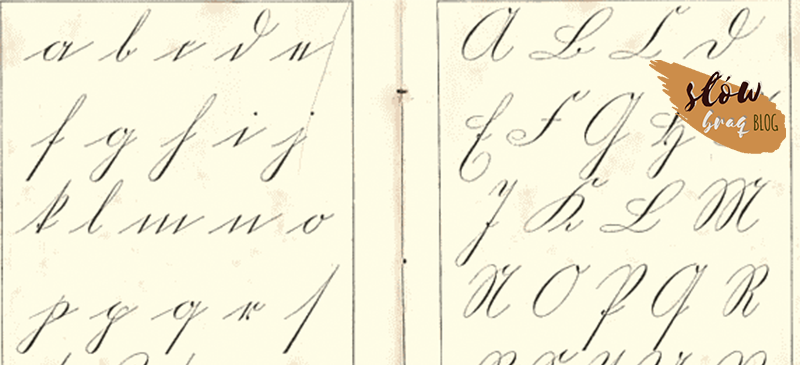 a b c d e
f g h i j
k l m n o
p p q r ſ
A B C D
E F G H
J K L M
N O P Q R
słów
braq BLOG